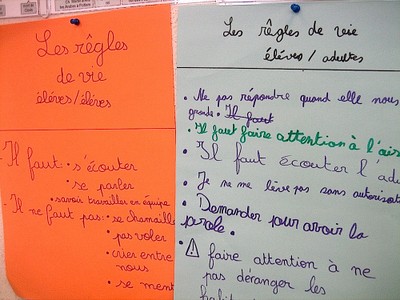 Les rêgles
de vie
élèves/élèves
Il faut • s'écouter
• se parler
• savoir travailler en équipe
- Il ne faut pas: • se chamaille
• pas voler
• crier entre
nous
• se ment
Les rêgles de vie
élèves / adultes
• Ne pas répondre quand elle nous
gronde. Il faut
• Il faut faire attention à l'ais
• Il faut écouter l'adu
• Je ne me lève pas sans autorisat
• Demander pour avoir la
parole.
• ⚠ faire attention à ne
pas déranger les